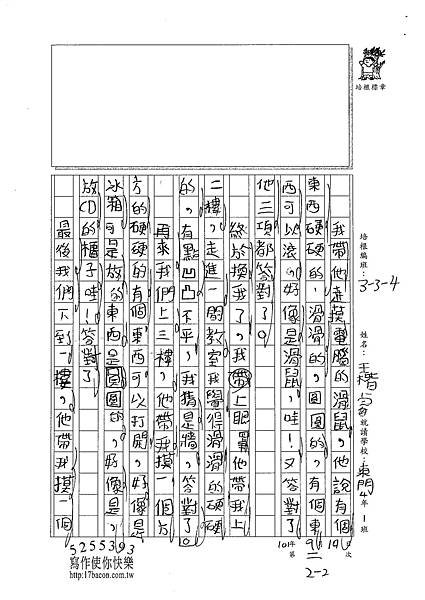 培根標章
培根編班：3-3-4
姓名：王楷
就讀學校：東門4年1班
我帶他走摸電腦的滑鼠，他說有個
東西硬硬的，滑滑的，圓圓的，有個東
西可以滾的好像是滑鼠，哇！又答對了
他三項都答對了。
終於換我了，我帶上眼罩他帶我上
二樓，走進一間教室我覺得滑滑的硬硬
的，有點凹凸不平，我猜是牆，答對了。
再來我們上三樓，他帶我摸一個方
方的硬硬的有個東西可以打開，好像是
冰箱可是放的東西是圓圓的，好像是，
放CD的櫃子哇！答對了
最後我們下到一樓，他帶我摸一個
101年
第
次
2-2
5255393
寫作使你快樂
http://17bacon.com.tw